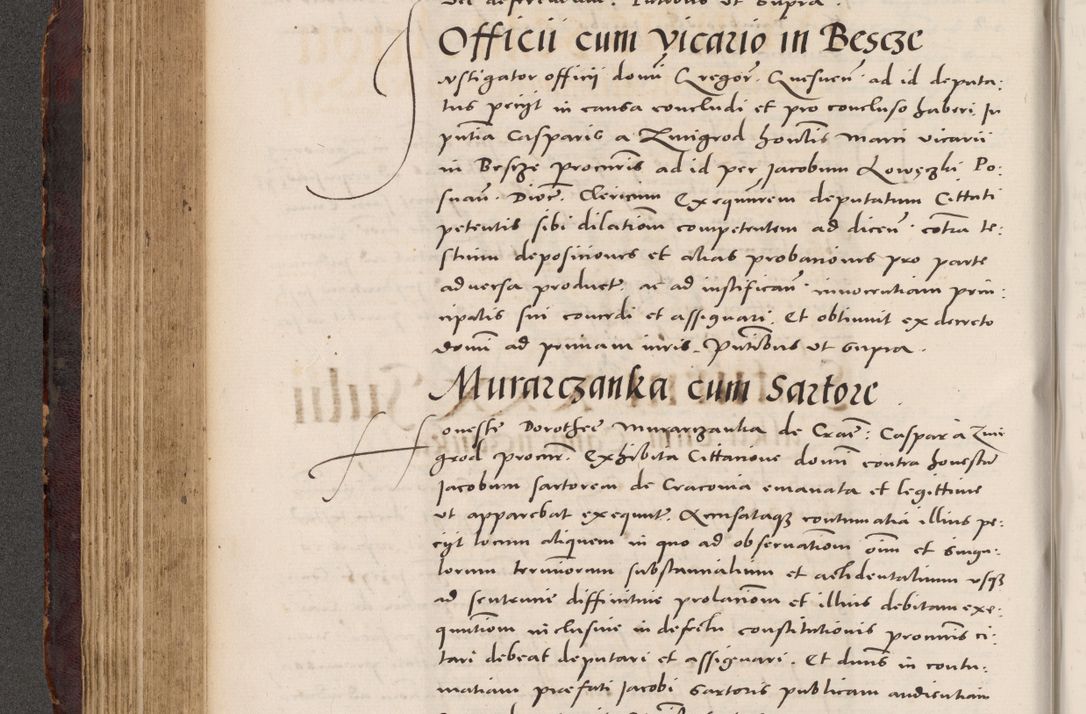 Officii cum vicario in Bescze
Instigator officij domi Gregor. Quesuen. ad id deputa:
tus petijt in causa concludi et pro concluso haberi. In
pntia Casparis a Zmigrod hontis Marci vicarii
in Bescze procuris ad id per Jacobum Lowęczki Po:
snan. Dioc. Clericum Exequutrem deputatum Cittati
petentis sibi dilationem competentem ad dicen. contra te:
stium depositiones et alias probationes pro parte
adversa product. ac ad iustifican. innocentiam prin:
cipalis sui concedi et assignari. Et obtinuit ex decreto
domi ad primam iuris. Pntibus ut supra.
Murarczanka cum Sartore
Honeste Dorothee Murarczanka de Crac. Caspar a Zmi
grod procur. Exhibita Cittatione domi contra honestum
Jacobum sartorem de Cracovia emanata et legittime
ut apparebat exequut. Accusataq3 contumatia illius pe:
cijt locum aliquem in quo ad observationem omm et singu:
lorum terminorum substantialium et accidentalium usq3
ad sententie diffinitive prolationem et illius debitam exe:
quutionem inclusive in defectu constitutionis procuris ci:
tari debeat deputari et assignari. Et dnus in contu:
matiam praefati Jacobi Sartoris publicam audientiam